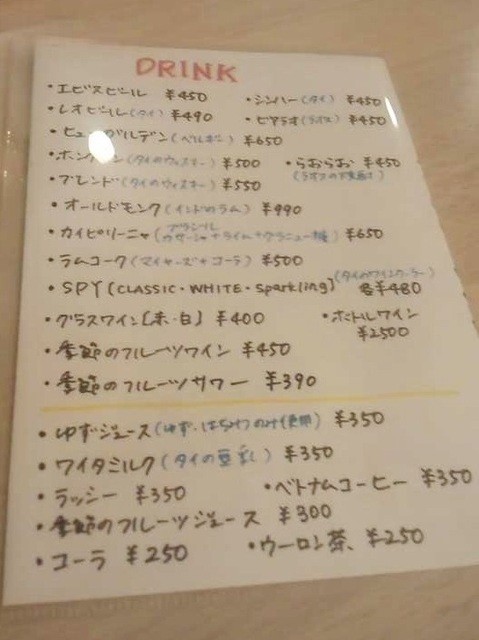 DRINK
・エビスビール ¥450
・シンハー(タイ) ¥450
・レオビール(タイ) ¥490
・ビアラオ(ラオス) ¥450
・ヒューガルデン(ベルギー) ¥650
(タイのウィスキー) ¥500
・らおらお ¥450
・ブレンド(タイのウィスキー) ¥550
(ラオスの
・オールドモンク(インドのラム) ¥990
・カイピリーニャ(ブラジル ライム+グラニュー糖) ¥650
・ラムコーク(マイヤーズ+コーラ) ¥500
・SPY(CLASSIC・WHITE・Sparkling) (タイのワインクーラー) 各¥480
・グラスワイン[赤・白] ¥400
・ボトルワイン ¥2500
・季節のフルーツワイン ¥450
・季節のフルーツサワー ¥390
・ゆずジュース(ゆず・はちみつのみ使用) ¥350
・ワイタミルク(タイの豆乳) ¥350
・ラッシー ¥350
・ベトナムコーヒー ¥350
・季節のフルーツジュース ¥300
・コーラ ¥250
・ウーロン茶、¥250